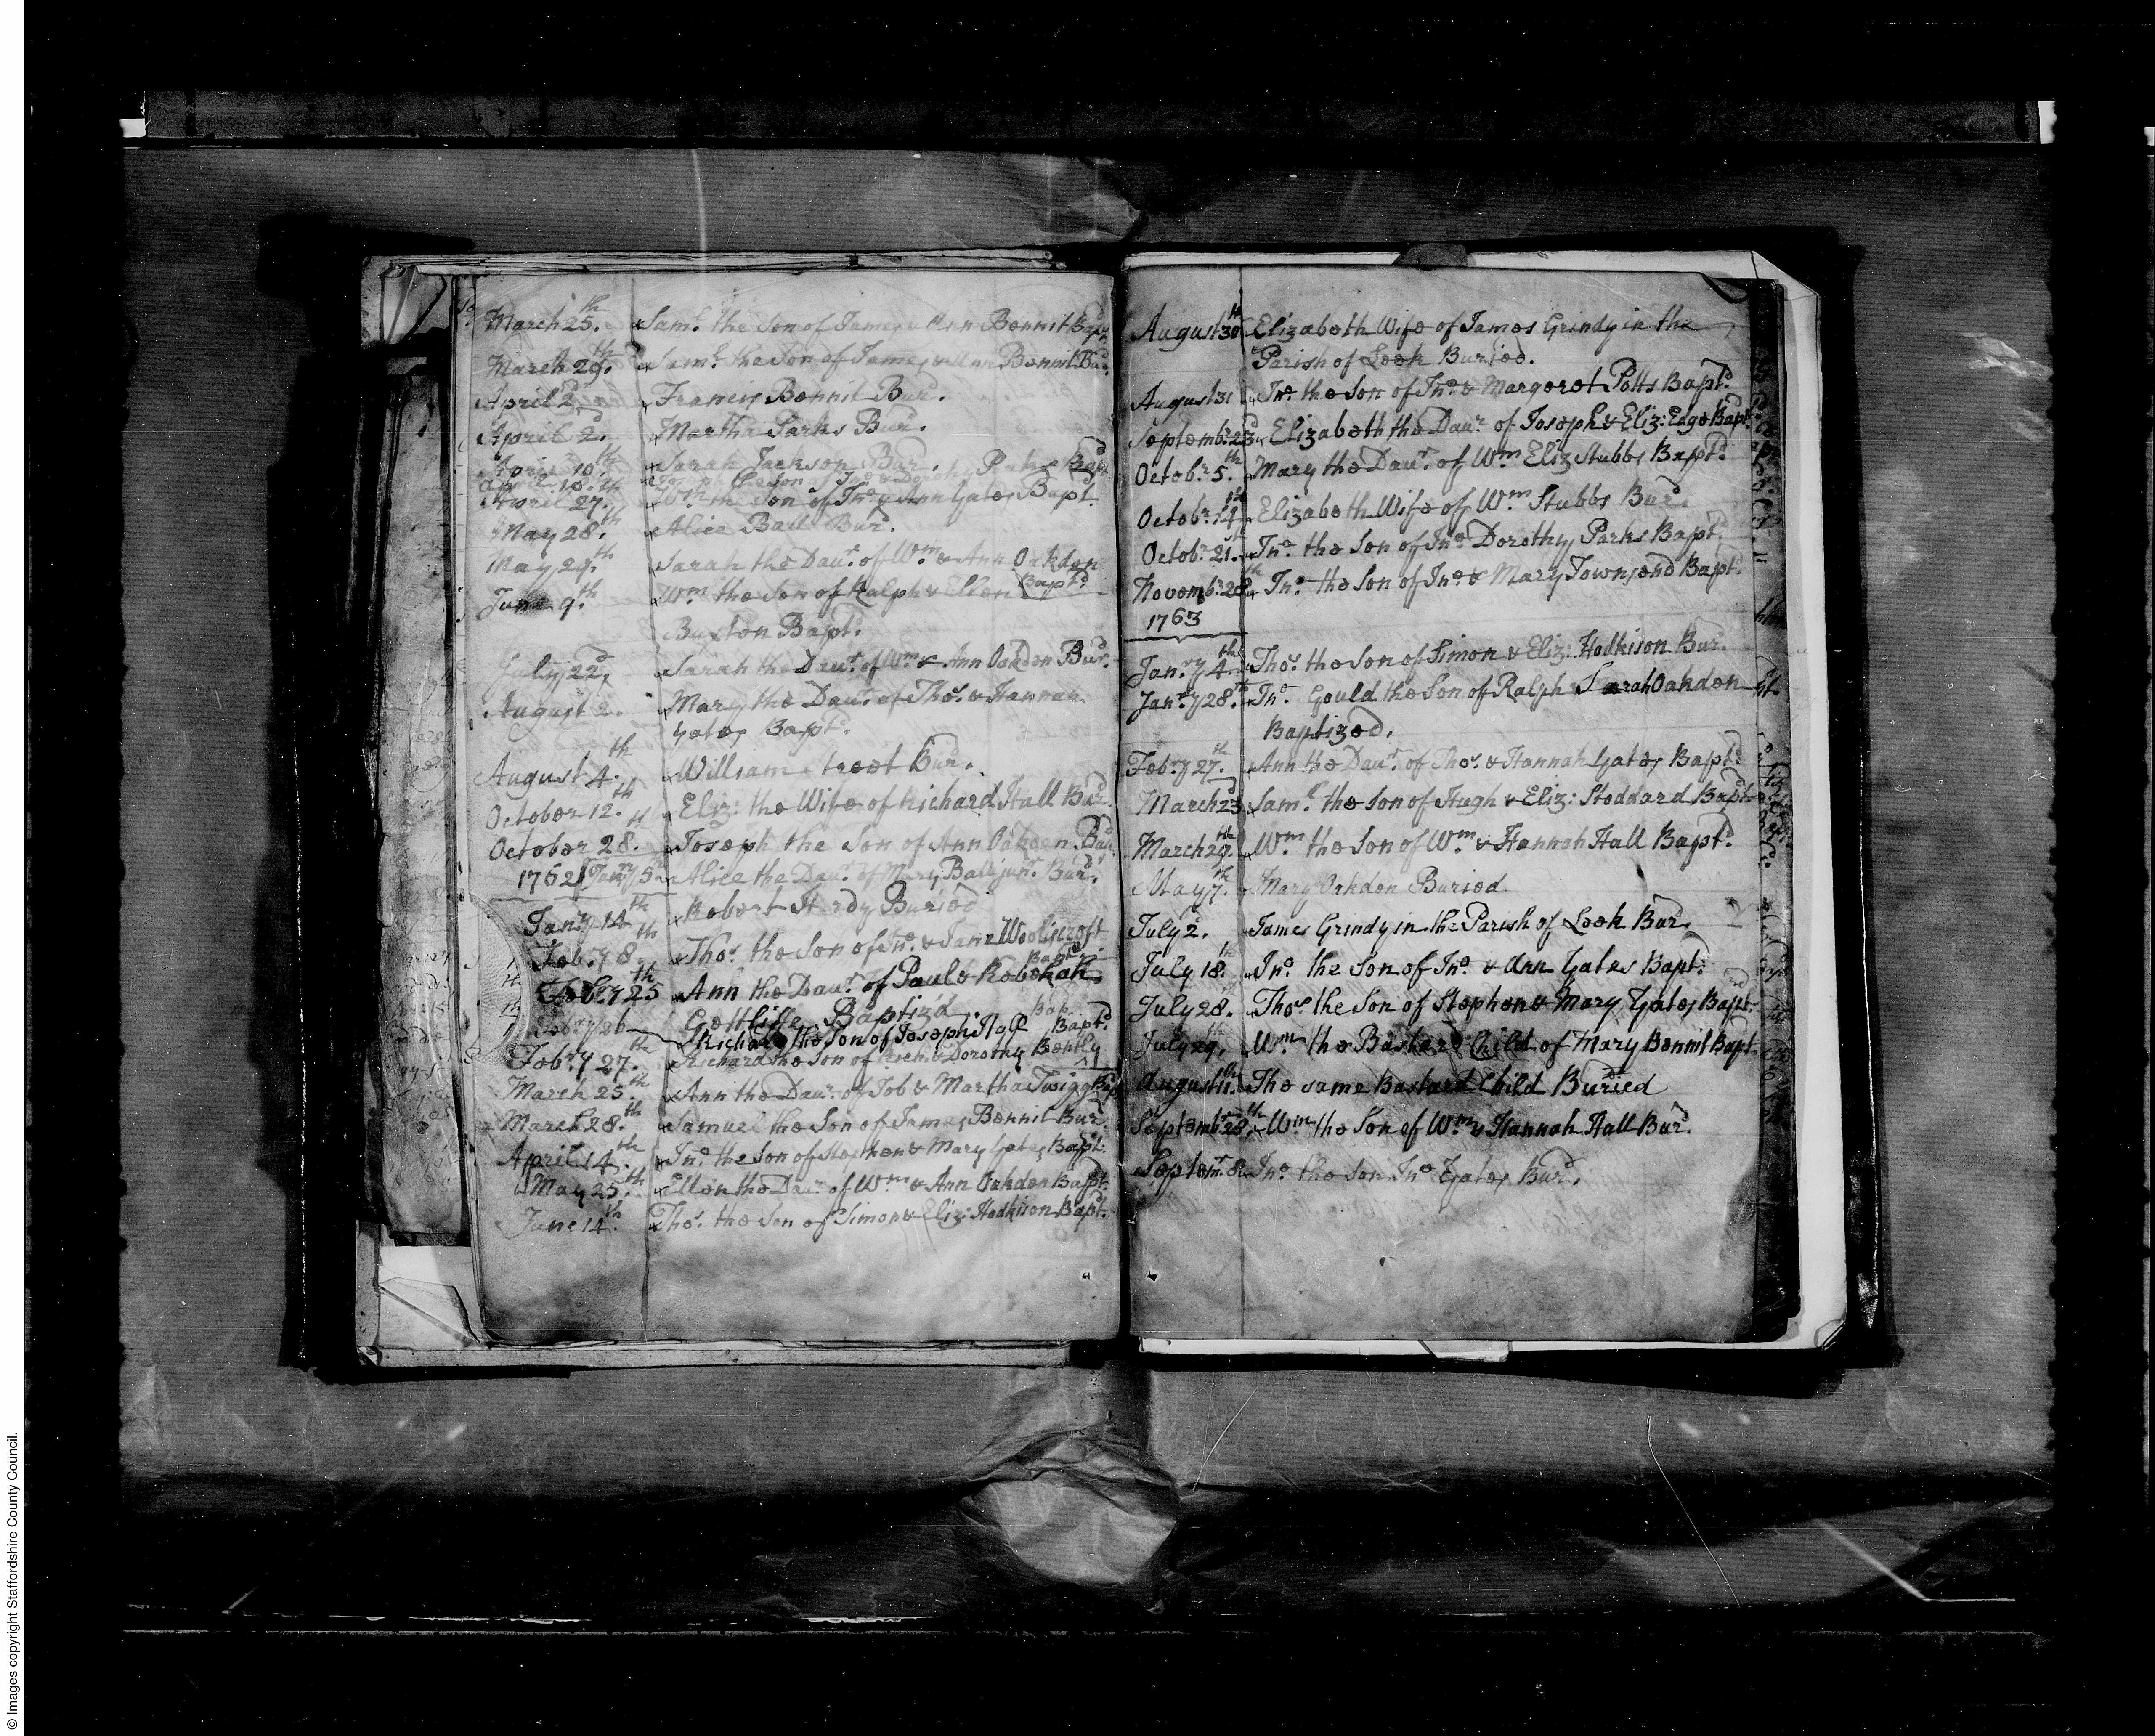 March 25.th Sam.l the Son of James & Ann Bennit Bap.t
March 29.th Sam.l the Son of James & Ann Bennit Bur.
April 2.d Francis Bennit Bur.
April 2.d Martha Parks Bur.d
April 10.th Sarah Jackson Bur.
April 18.th Joseph the Son of Parks Bap.
April 27.th W.m the Son of Jn.o & Ann Gates Bapt.
May 28.th Alice Ball Bur.d
May 29.th Sarah the Dau.r of W.m & Ann Oakden
Bapt.d
June 9.th W.m the Son of Ralph & Ellen
Buxton Bapt.d
July 22.d Sarah the Dau.r of W.m & Ann Oakden Bur.d
August 2. Mary the Dau.r of Tho.s & Hannah
Gates Bapt.d
August 4.th William Street Bur.
October 12.th Eliz: the Wife of Richard Hall Bur.d
October 28.th Joseph the Son of Ann Oakden Bur.
1762 Jan.ry 5.th Alice the Dau.r of Mary Ball jun.r Bur.d
Jan.ry 14th Robert Hardy Buried
Feb.ry 8th Tho.s the Son of Jn.o & Jane Woolliscroft
Bapt.d
Feb.ry 25th Ann the Dau.r of Paul & Rebekah
Gettliffe Baptiz'd
Feb.ry 26 Richard the Son of Joseph Bapt.d
Feb.ry 27.th Richard the Son of & Dorothy Bently
March 25.th Ann the Dau.r of Job & Martha Twigg Bap
March 28.th Samuel the Son of James Bennit Bur.d
April 14.th Jn.o the Son of Stephen & Mary Gates Bapt.d
May 25.th Ellen the Dau.r of W.m & Ann Oakden Bapt.d
June 14.th Tho.s the Son of Simon & Eliz: Hodkison Bapt.d
August 30th Elizabeth Wife of James Grindy in the
Parish of Leek Buried.
August 31 Jn.o the Son of Jn.o & Margaret Potts Bapt.d
Septemb.r 23d Elizabeth the Dau.r of Joseph & Eliz: Edge Bapt.d
Octob.r 5.th Mary the Dau.r of W.m Eliz Stubbs Bapt.d
Octob.r 14th Elizabeth Wife of W.m Stubbs Bur.d
Octob.r 21.st Jn.o the Son of Jn.o Dorothy Parks Bapt.d
Novemb.r 28th Jn.o the Son of Jn.o & Mary Townsend Bapt.d
1763
Jan.ry 4.th Tho.s the Son of Simon & Eliz: Hodkison Bur.d
Jan.ry 28.th Jn.o Gould the Son of Ralph Sarah Oakden
Baptized.
Feb.ry 27.th Ann the Dau.r of Tho.s & Hannah Gates Bapt.d
March 23 Sam.l the Son of Hugh & Eliz: Stoddard Bapt.d
March 29.th W.m the Son of W.m & Hannah Hall Bapt.d
May 7.th Mary Oakden Buried
July 2. James Grindy in the Parish of Leek Bur.d
July 18.th Jn.o the Son of Jn.o & Ann Gates Bapt.d
July 28. Tho.s the Son of Stephen & Mary Gates Bapt.d
July 29.th W.m the Bastard Child of Mary Bennit Bapt.
August 11.th The same Bastard Child Buried
Septemb.r 28.th W.m the Son of W.m & Hannah Hall Bur.d
Septem.r 8. Jn.o the Son Jn.o Gates Bur.d
© Images copyright Staffordshire County Council.